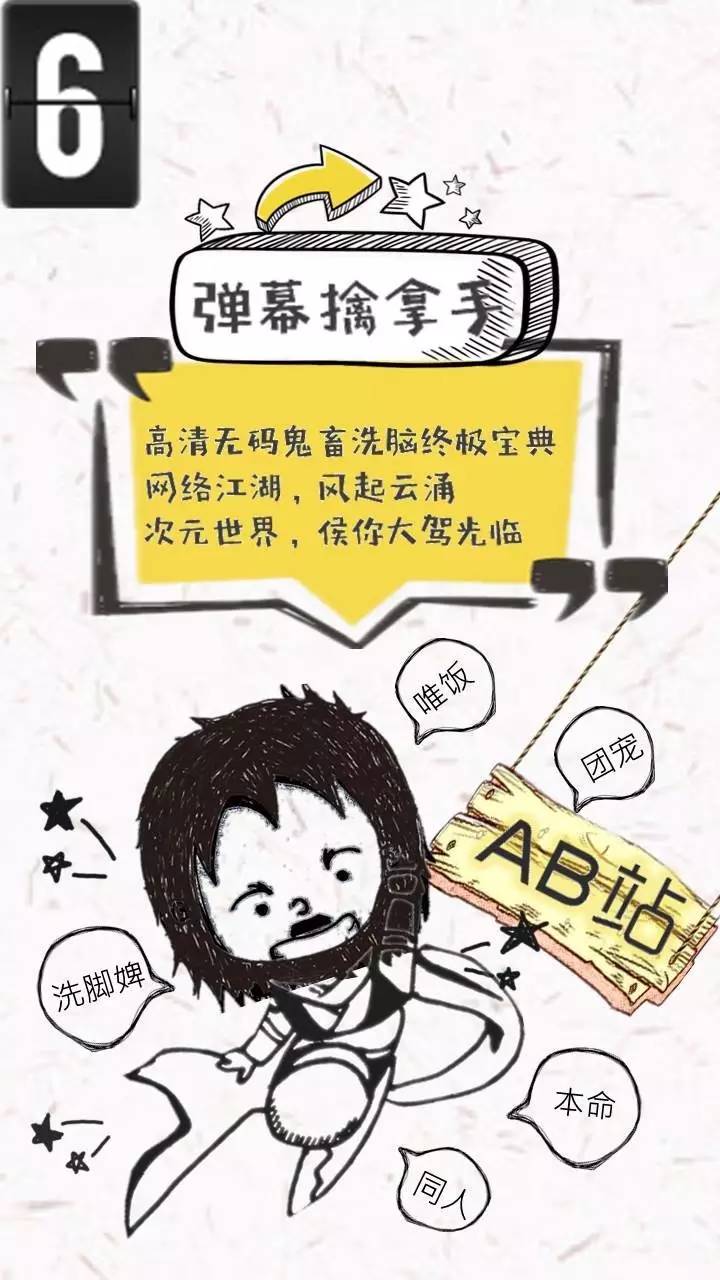 6
弹幕擒拿手
高清无码鬼畜洗脑终极宝典
网络江湖，风起云涌
次元世界，侯你大驾光临
唯饭
团宠
AB站
洗脚婢
本命
同人